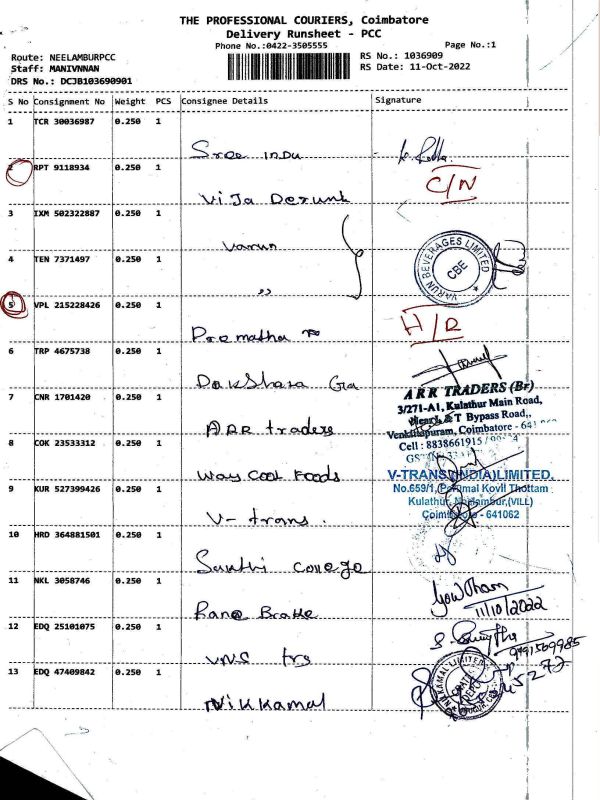 THE PROFESSIONAL COURIERS, Coimbatore
Delivery Runsheet - PCC
Phone No.:0422-3505555
Page No.:1
Route: NEELAMBURPCC
RS No.: 1036909
Staff: MANIVNNAN
RS Date: 11-Oct-2022
DRS No.: DCJB103690901
S No Consignment No Weight PCS Consignee Details Signature
1 TCR 30036987 0.250 1
Sree indu
2 RPT 9118934 0.250 1
C/N
Vija
3 IXM 502322887 0.250 1
Varun
4 TEN 7371497 0.250 1
VARUN BEVERAGES LIMITED
CBE
,,
5 VPL 215228426 0.250 1
H/R
6 TRP 4675738 0.250 1
7 CNR 1701420 0.250 1
ARR TRADERS (Br)
3/271-A1, Kulathur Main Road,
Near L & T Bypass Road,,
ARR traders
Venkitapuram, Coimbatore - 641
8 COK 23533312 0.250 1
Cell : 8838661915
Way Cool Foods
V-TRANS (INDIA) LIMITED.
9 KUR 527399426 0.250 1
No.659/1, Perumal Kovil Thottam
Kulathur, Neelambur,(VILL)
V- trans.
Coimbatore - 641062
10 HRD 364881501 0.250 1
11 NKL 3058746 0.250 1
11/10/2022
Rane Brake
12 EDQ 25101075 0.250 1
13 EDQ 47409842 0.250 1
45272
Nikkamal